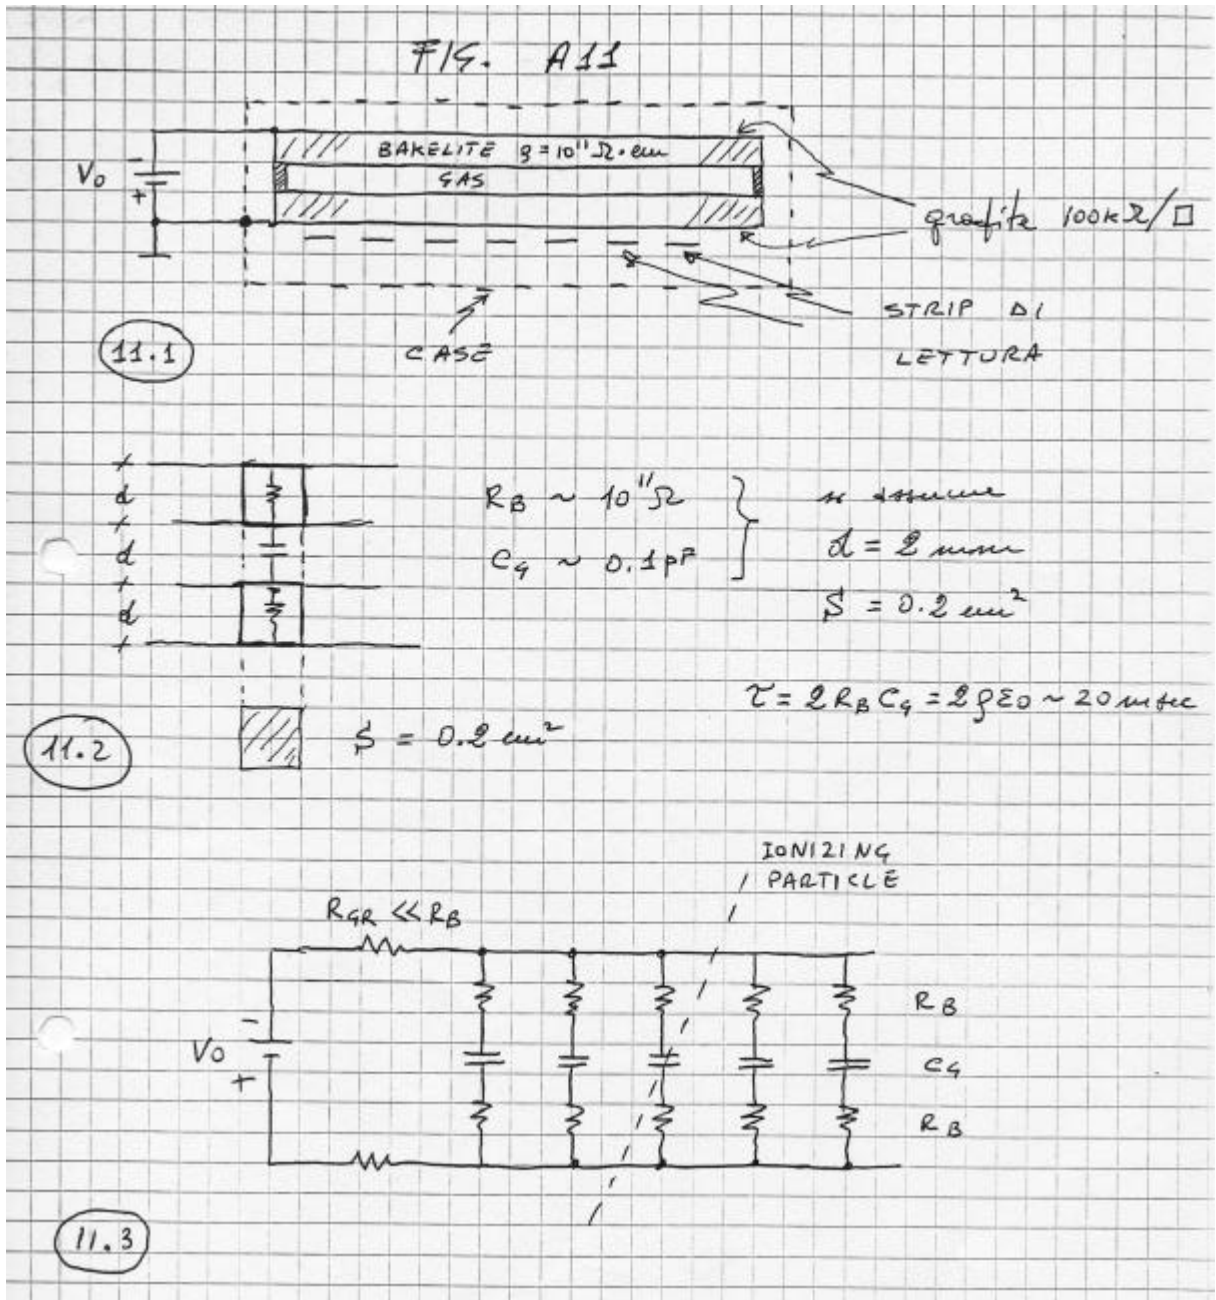 FIG. A11
BAKELITE ρ = 10¹¹ Ω·cm
V₀
-
+
GAS
grafite 100kΩ/□
STRIP DI
LETTURA
CASE
11.1
d
d
d
R_B ~ 10¹¹ Ω
C_G ~ 0.1 pF
si assume
d = 2 mm
S = 0.2 cm²
τ = 2 R_B C_G = 2 ρ ε₀ ~ 20 msec
11.2
S = 0.2 cm²
IONIZING
PARTICLE
R_GR << R_B
V₀
-
+
R_B
C_G
R_B
11.3